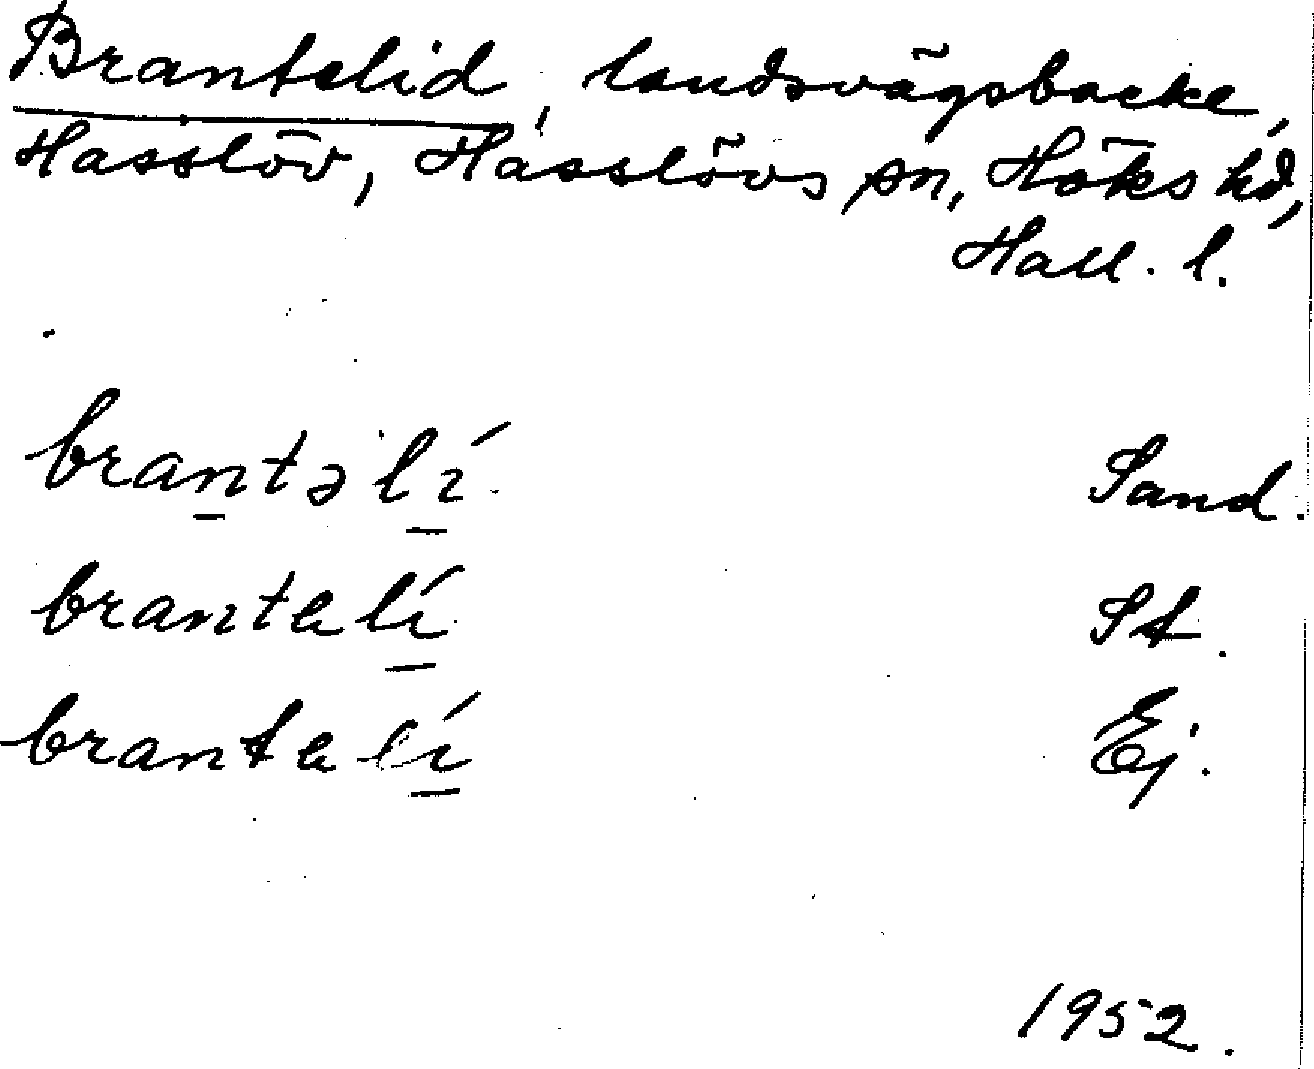 Brantelid, landsvägsbacke,
Hasslöv, Hasslövs sn, Höks hd,
Hall. l.
brantəlí Sand.
brantalí St.
brantalí Ej.
1952.